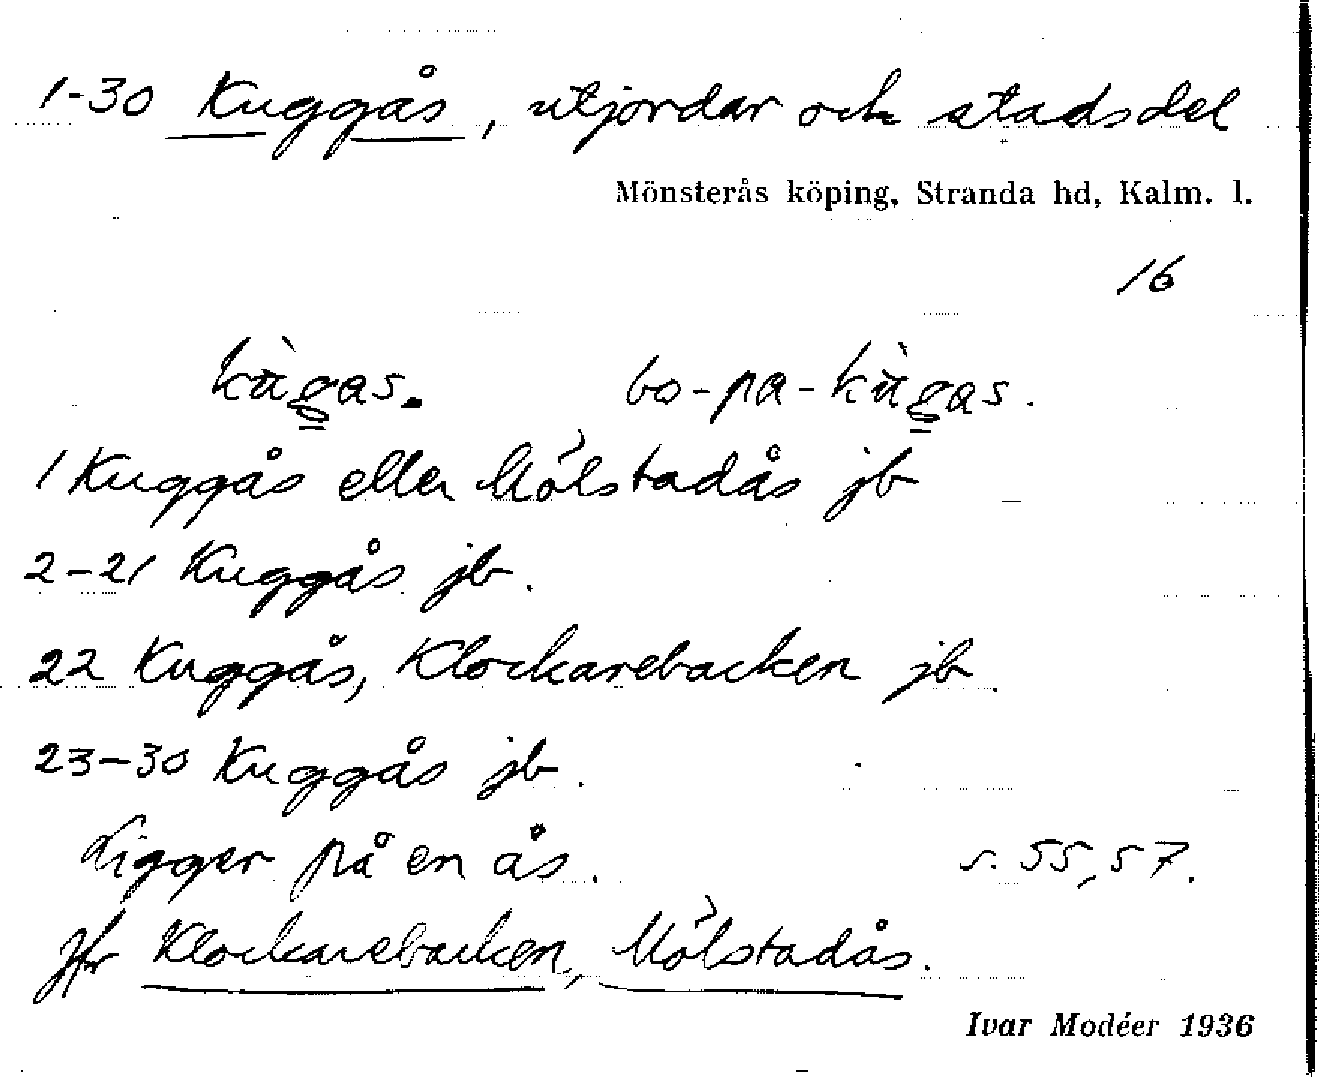 1-30 Kuggås, utjordar och stadsdel
Mönsterås köping, Stranda hd, Kalm. l.
16
kùgas. bo-pa-kùgas.
1 Kuggås eller Mölstadås jb
2-21 Kuggås jb.
22 Kuggås, Klockarebacken jb.
23-30 Kuggås jb.
Ligger på en ås. s. 55, 57.
Jfr Klockarebacken, Mölstadås.
Ivar Modéer 1936